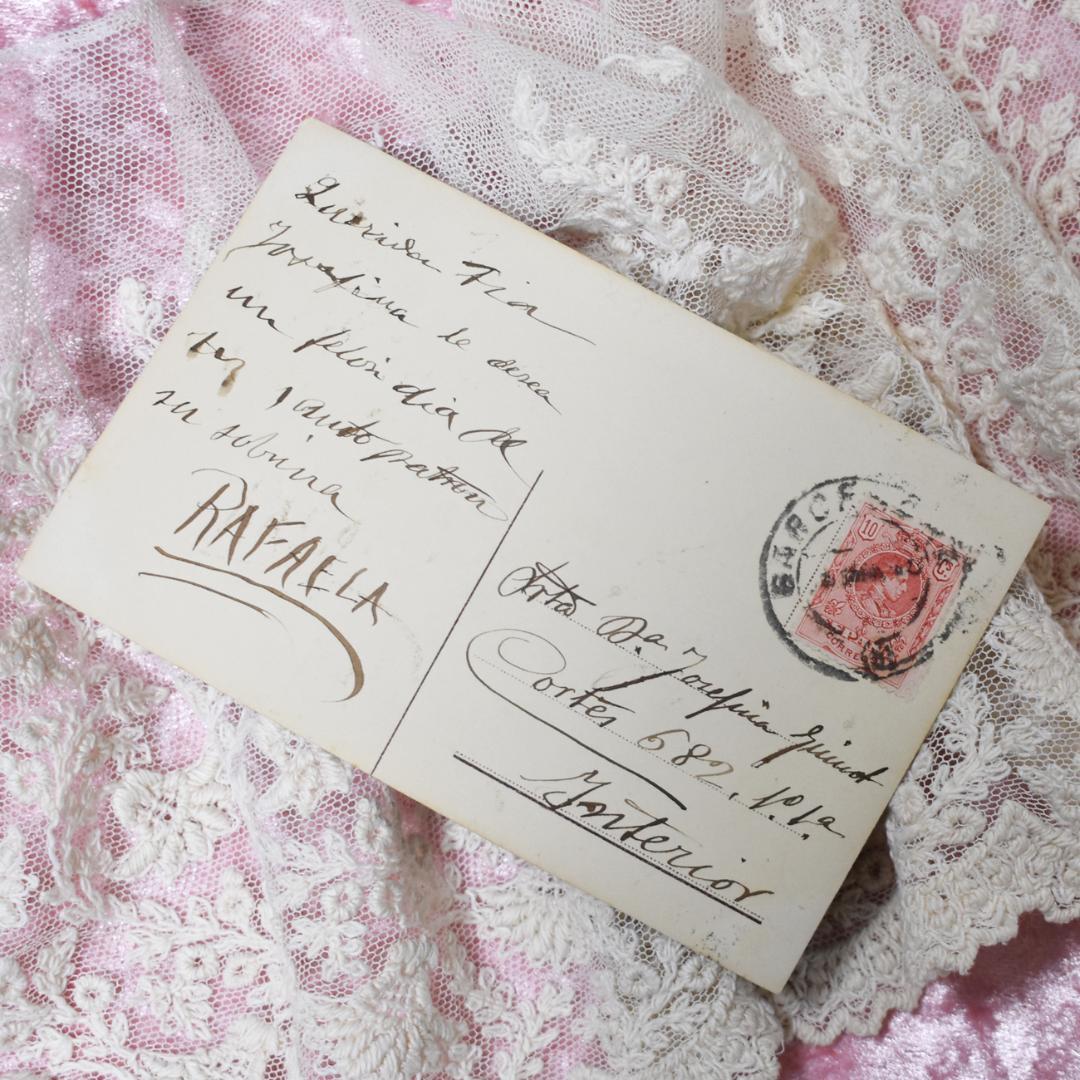 Querida Tia
Josefina le desea
un feliz dia de
su santo patron
su sobrina
RAFAELA
BARCE
10
CORRE
Srta Da. Josefina Guinot
Cortes 682, 1º 1a
Interior